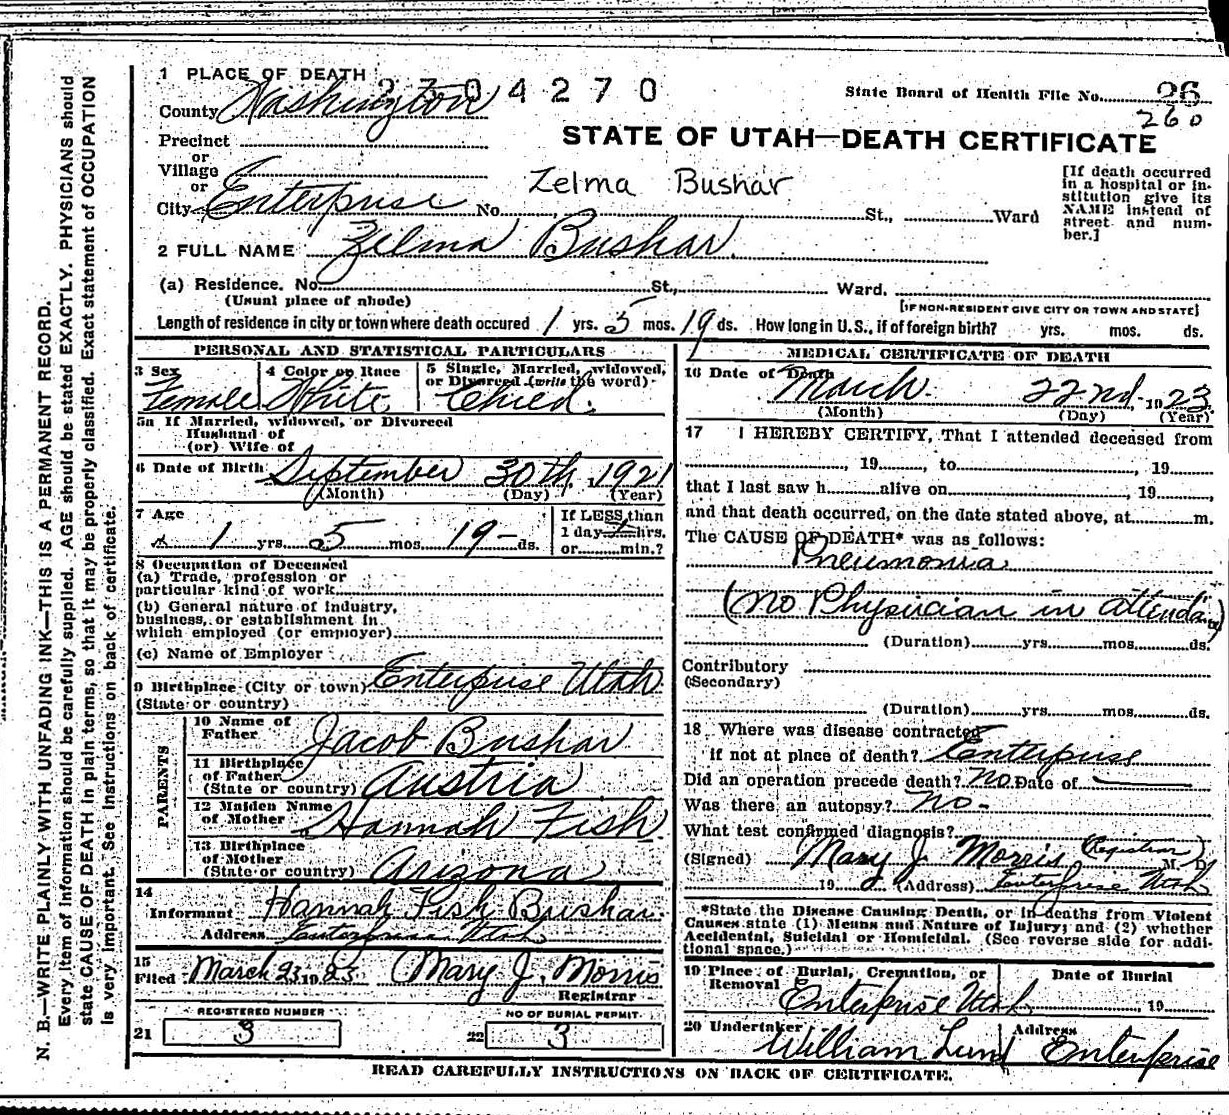 1 PLACE OF DEATH
2704270
State Board of Health File No. 26
260
County Washington
STATE OF UTAH—DEATH CERTIFICATE
Precinct
or
Village
or
Zelma Bushar
City Enterprise No. St., Ward
[If death occurred
in a hospital or in-
stitution give its
NAME instead of
street and num-
ber.]
2 FULL NAME Zelma Bushar.
(a) Residence. No. St., Ward.
(Usual place of abode)
[IF NON-RESIDENT GIVE CITY OR TOWN AND STATE]
Length of residence in city or town where death occured 1 yrs. 5 mos. 19 ds. How long in U.S., if of foreign birth? yrs. mos. ds.
PERSONAL AND STATISTICAL PARTICULARS
3 Sex
Female
4 Color or Race
White
5 Single, Married, widowed,
or Divorced (write the word)
Child.
5a If Married, widowed, or Divorced
Husband of
(or) Wife of
6 Date of Birth September 30th, 1921
(Month) (Day) (Year)
7 Age
1 yrs. 5 mos. 19- ds.
If LESS than
1 day hrs.
or min.?
8 Occupation of Deceased
(a) Trade, profession or
particular kind of work
(b) General nature of Industry,
business, or establishment in
which employed (or employer)
(c) Name of Employer
9 Birthplace (City or town) Enterprise Utah
(State or country)
PARENTS
10 Name of
Father Jacob Bushar
11 Birthplace
of Father
(State or country) Austria
12 Maiden Name
of Mother Hannah Fish
13 Birthplace
of Mother
(State or country) Arizona
14
Informant Hannah Fish Bushar.
Address Enterprise Utah
15
Filed March 23 1923 Mary J. Morris
Registrar
REGISTERED NUMBER
21 3
NO OF BURIAL PERMIT
22 3
MEDICAL CERTIFICATE OF DEATH
16 Date of Death
March 22nd, 1923
(Month) (Day) (Year)
17 I HEREBY CERTIFY, That I attended deceased from
, 19, to, 19
that I last saw h alive on, 19,
and that death occurred, on the date stated above, at m.
The CAUSE OF DEATH* was as follows:
Pneumonia
(No Physician in attendance)
(Duration) yrs. mos. ds.
Contributory
(Secondary)
(Duration) yrs. mos. ds.
18 Where was disease contracted
if not at place of death? Enterprise
Did an operation precede death? No Date of
Was there an autopsy? No-
What test confirmed diagnosis?
(Signed) Mary J. Morris (Registrar) M. D.
19 (Address) Enterprise Utah
*State the Disease Causing Death, or in deaths from Violent
Causes state (1) Means and Nature of Injury; and (2) whether
Accidental, Suicidal or Homicidal. (See reverse side for addi-
tional space.)
19 Place of Burial, Cremation, or
Removal
Date of Burial
Enterprise Utah , 19
20 Undertaker
William Lund
Address
Enterprise
READ CAREFULLY INSTRUCTIONS ON BACK OF CERTIFICATE.
N. B.—WRITE PLAINLY WITH UNFADING INK—THIS IS A PERMANENT RECORD.
Every item of information should be carefully supplied. AGE should be stated EXACTLY. PHYSICIANS should
state CAUSE OF DEATH in plain terms, so that it may be properly classified. Exact statement of OCCUPATION
is very important. See instructions on back of certificate.